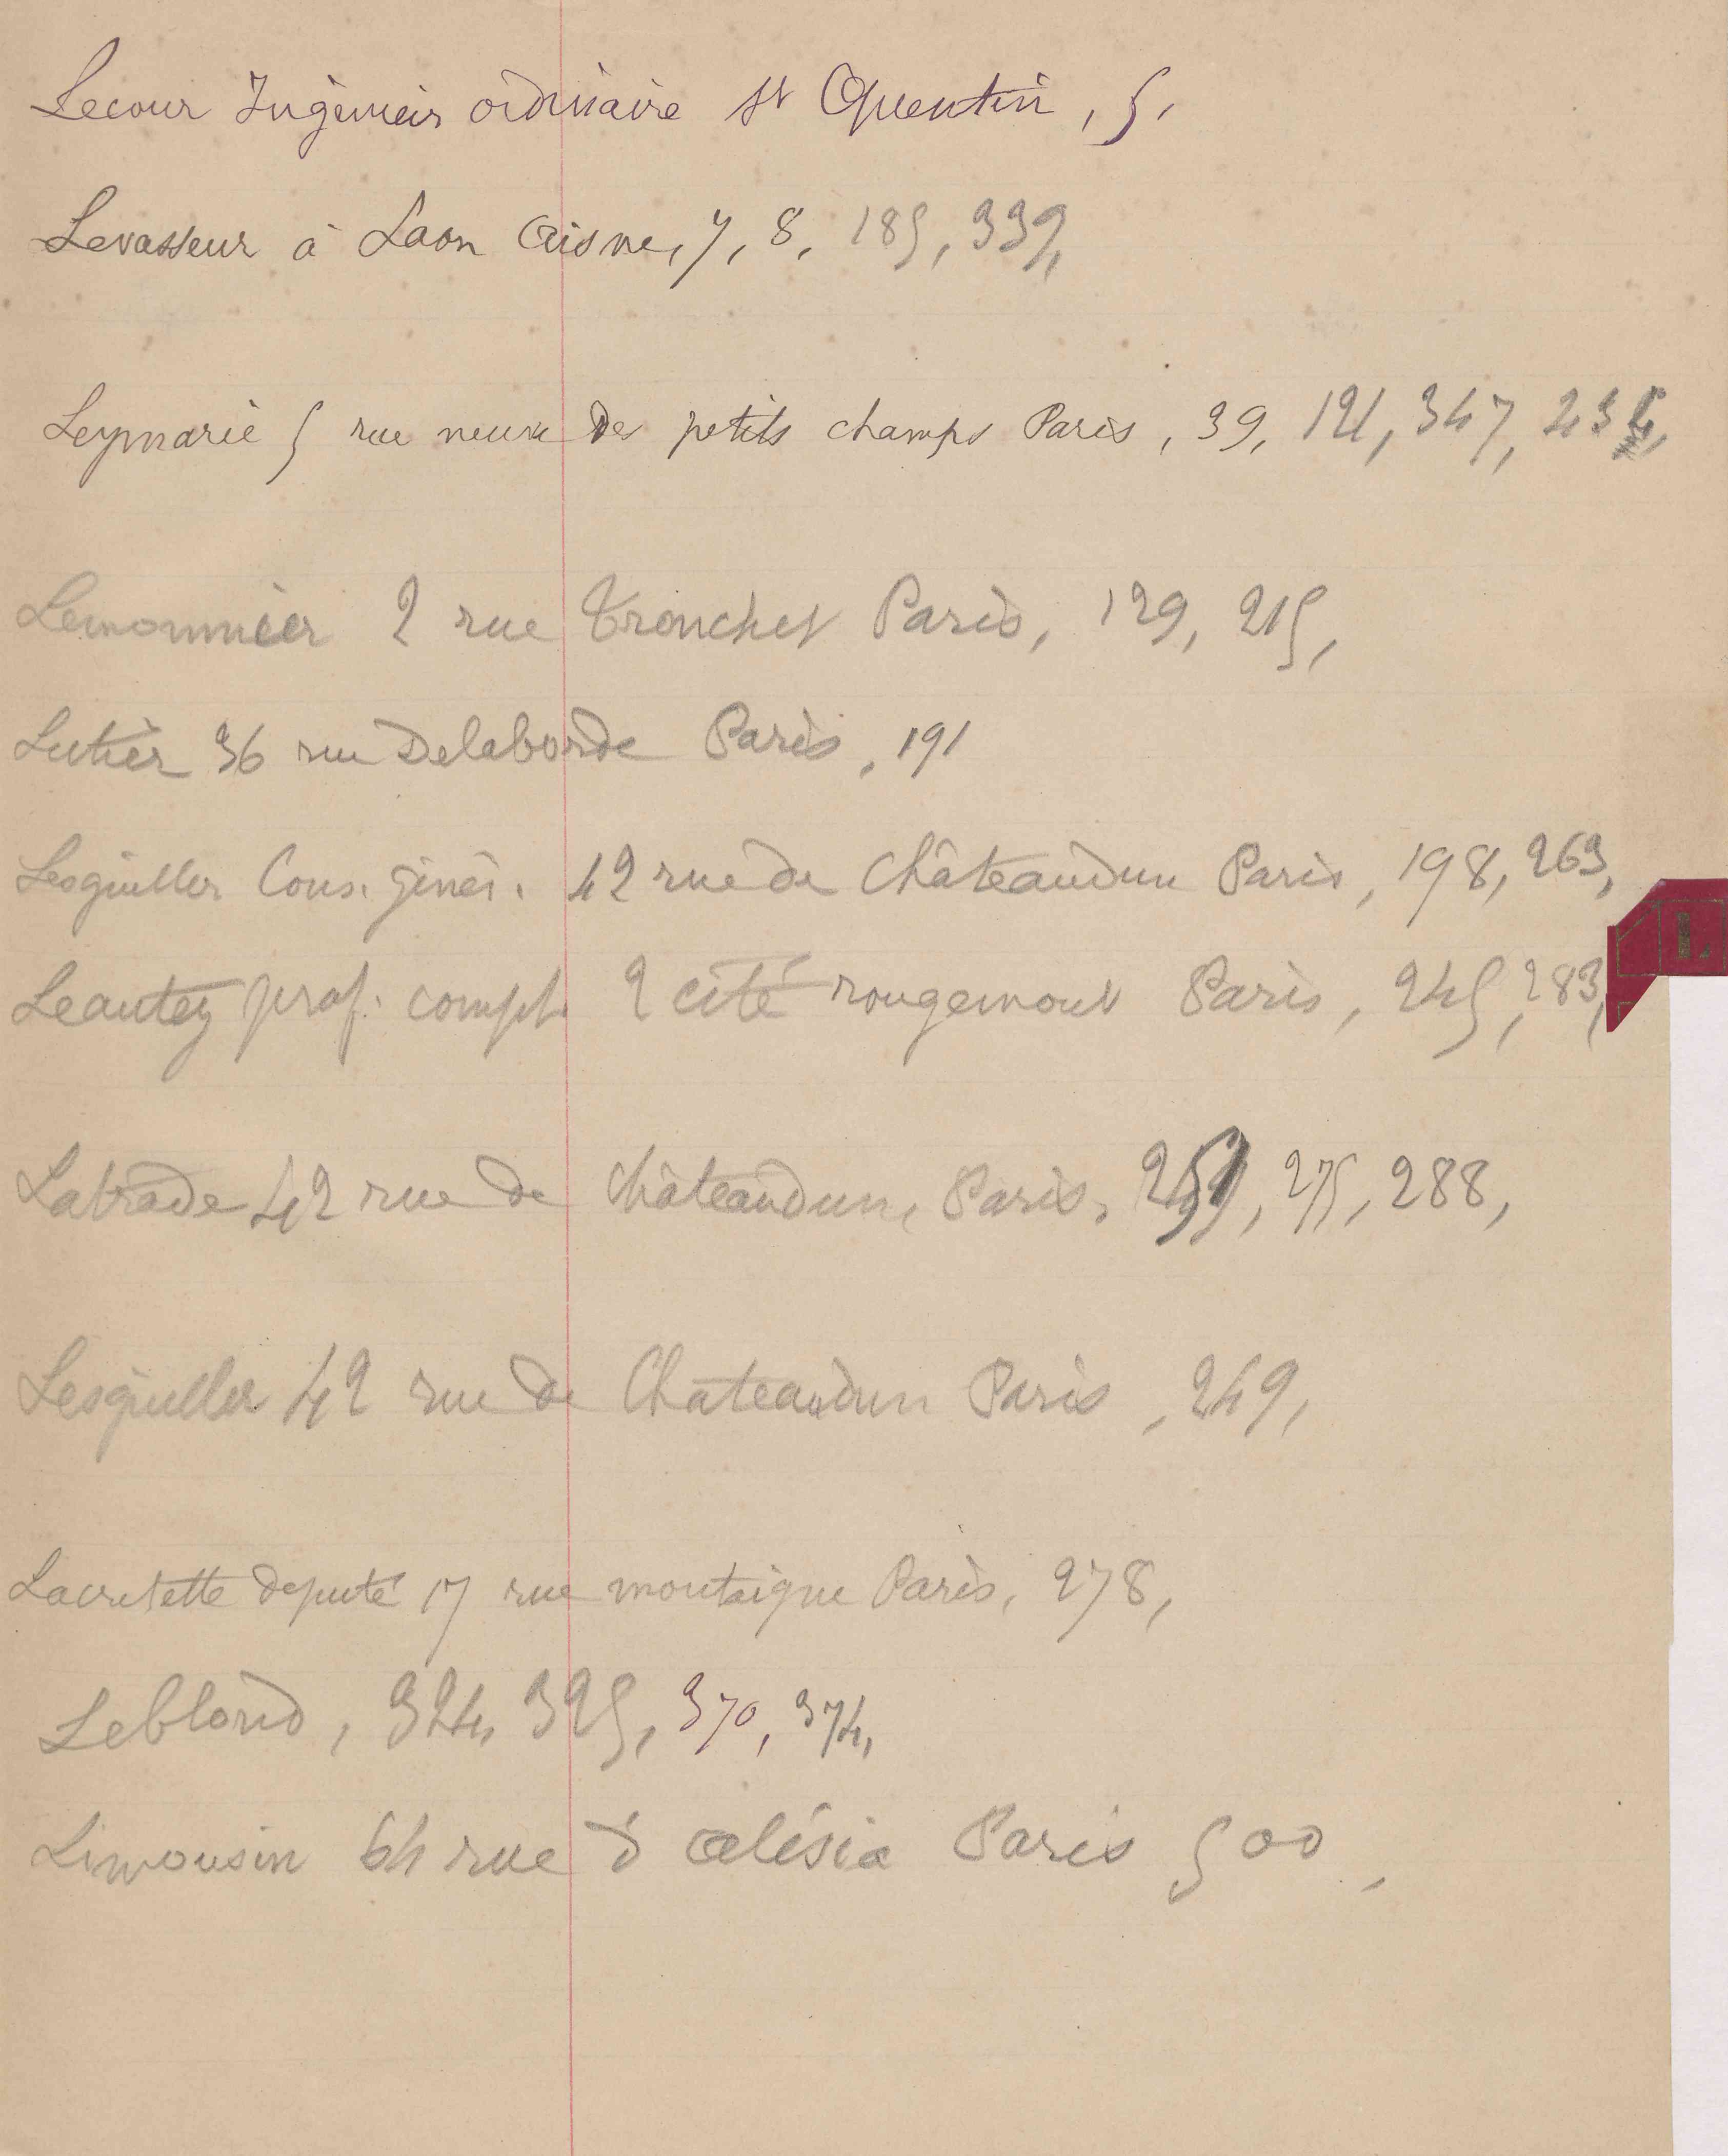 Lecour Ingénieur ordinaire St Quentin, 5,
Levasseur à Laon Aisne, 7, 8, 185, 339,
Leymarie 5 rue neuve des petits champs Paris, 39, 121, 347,
Lemonnier 2 rue Tronchet Paris, 129, 215,
Lutier 36 rue Delaborde Paris, 191
Lesguiller Cons. génér. 42 rue de Châteaudun Paris, 198, 263,
L.
Leautey prof. compt. 2 cité rougemont Paris, 245, 283,
Latrade 42 rue de Châteaudun, Paris, 275, 288,
Lesguiller 42 rue de Chateaudun Paris, 249,
Lacretelle député 17 rue montaigne Paris, 278,
Leblond, 324, 325, 370, 374,
Limousin 64 rue d alésia Paris 500,